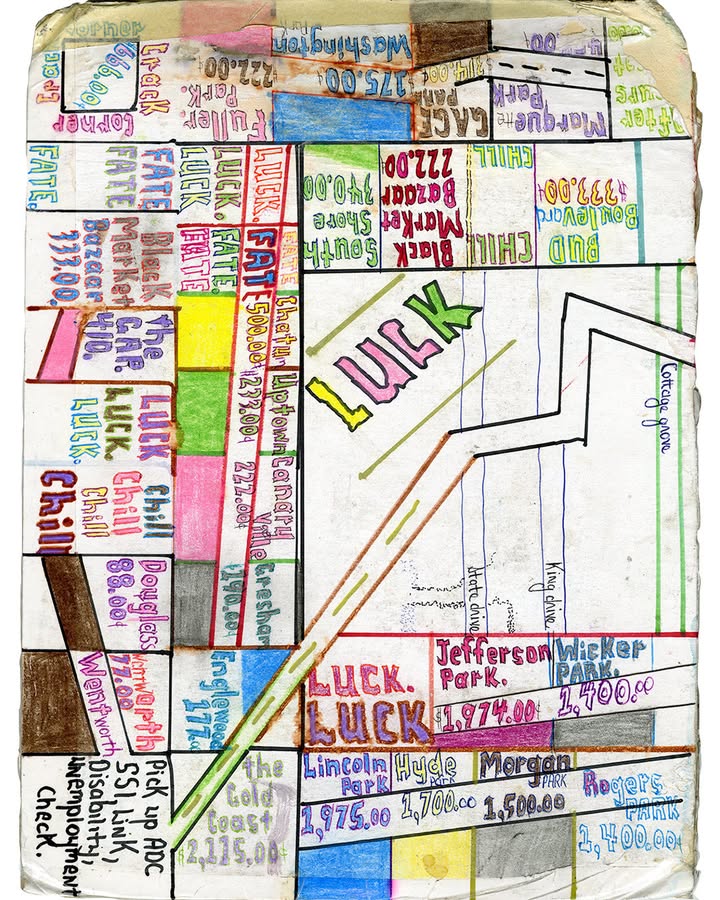 Corner
Crack
$66.00¢
Crack
Corner
222.00¢
Fuller
Park.
Washington
$175.00
$314.00¢
GAGE
PARK
Marquette
Park
After
FATE.
FATE
FATE
LUCK.
LUCK.
LUCK.
South
Shore
340.00¢
Black
Market
Bazaar
222.00
CHILL
CHILL
BUD
Boulevard
$333.00
Black
Market
Bazaar
333.00.
FATE.
FATE
FATE.
FATE
Chatum
500.00¢
the
GAP.
410.
Uptown
$233.00¢
Canary
Ville
222.00¢
LUCK
LUCK.
LUCK.
LUCK
Cottage grove
Chill
Chill
Chill
Chill
Greshar
$190.00¢
State drive
King drive
Douglass
88.00¢
Wentworth
77.00
Wentworth
Englewood
177.
LUCK.
LUCK
Jefferson
Park.
$1,974.00¢
Wicker
PARK.
1,400.00
Pick up ADC
SSI, Link,
Disability,
Unemployment
Check.
the
Gold
Coast
$2,115.00¢
Lincoln
Park
1,975.00
Hyde
Park
1,700.00
Morgan
PARK
1,500.00
Rogers
PARK
1,400.00